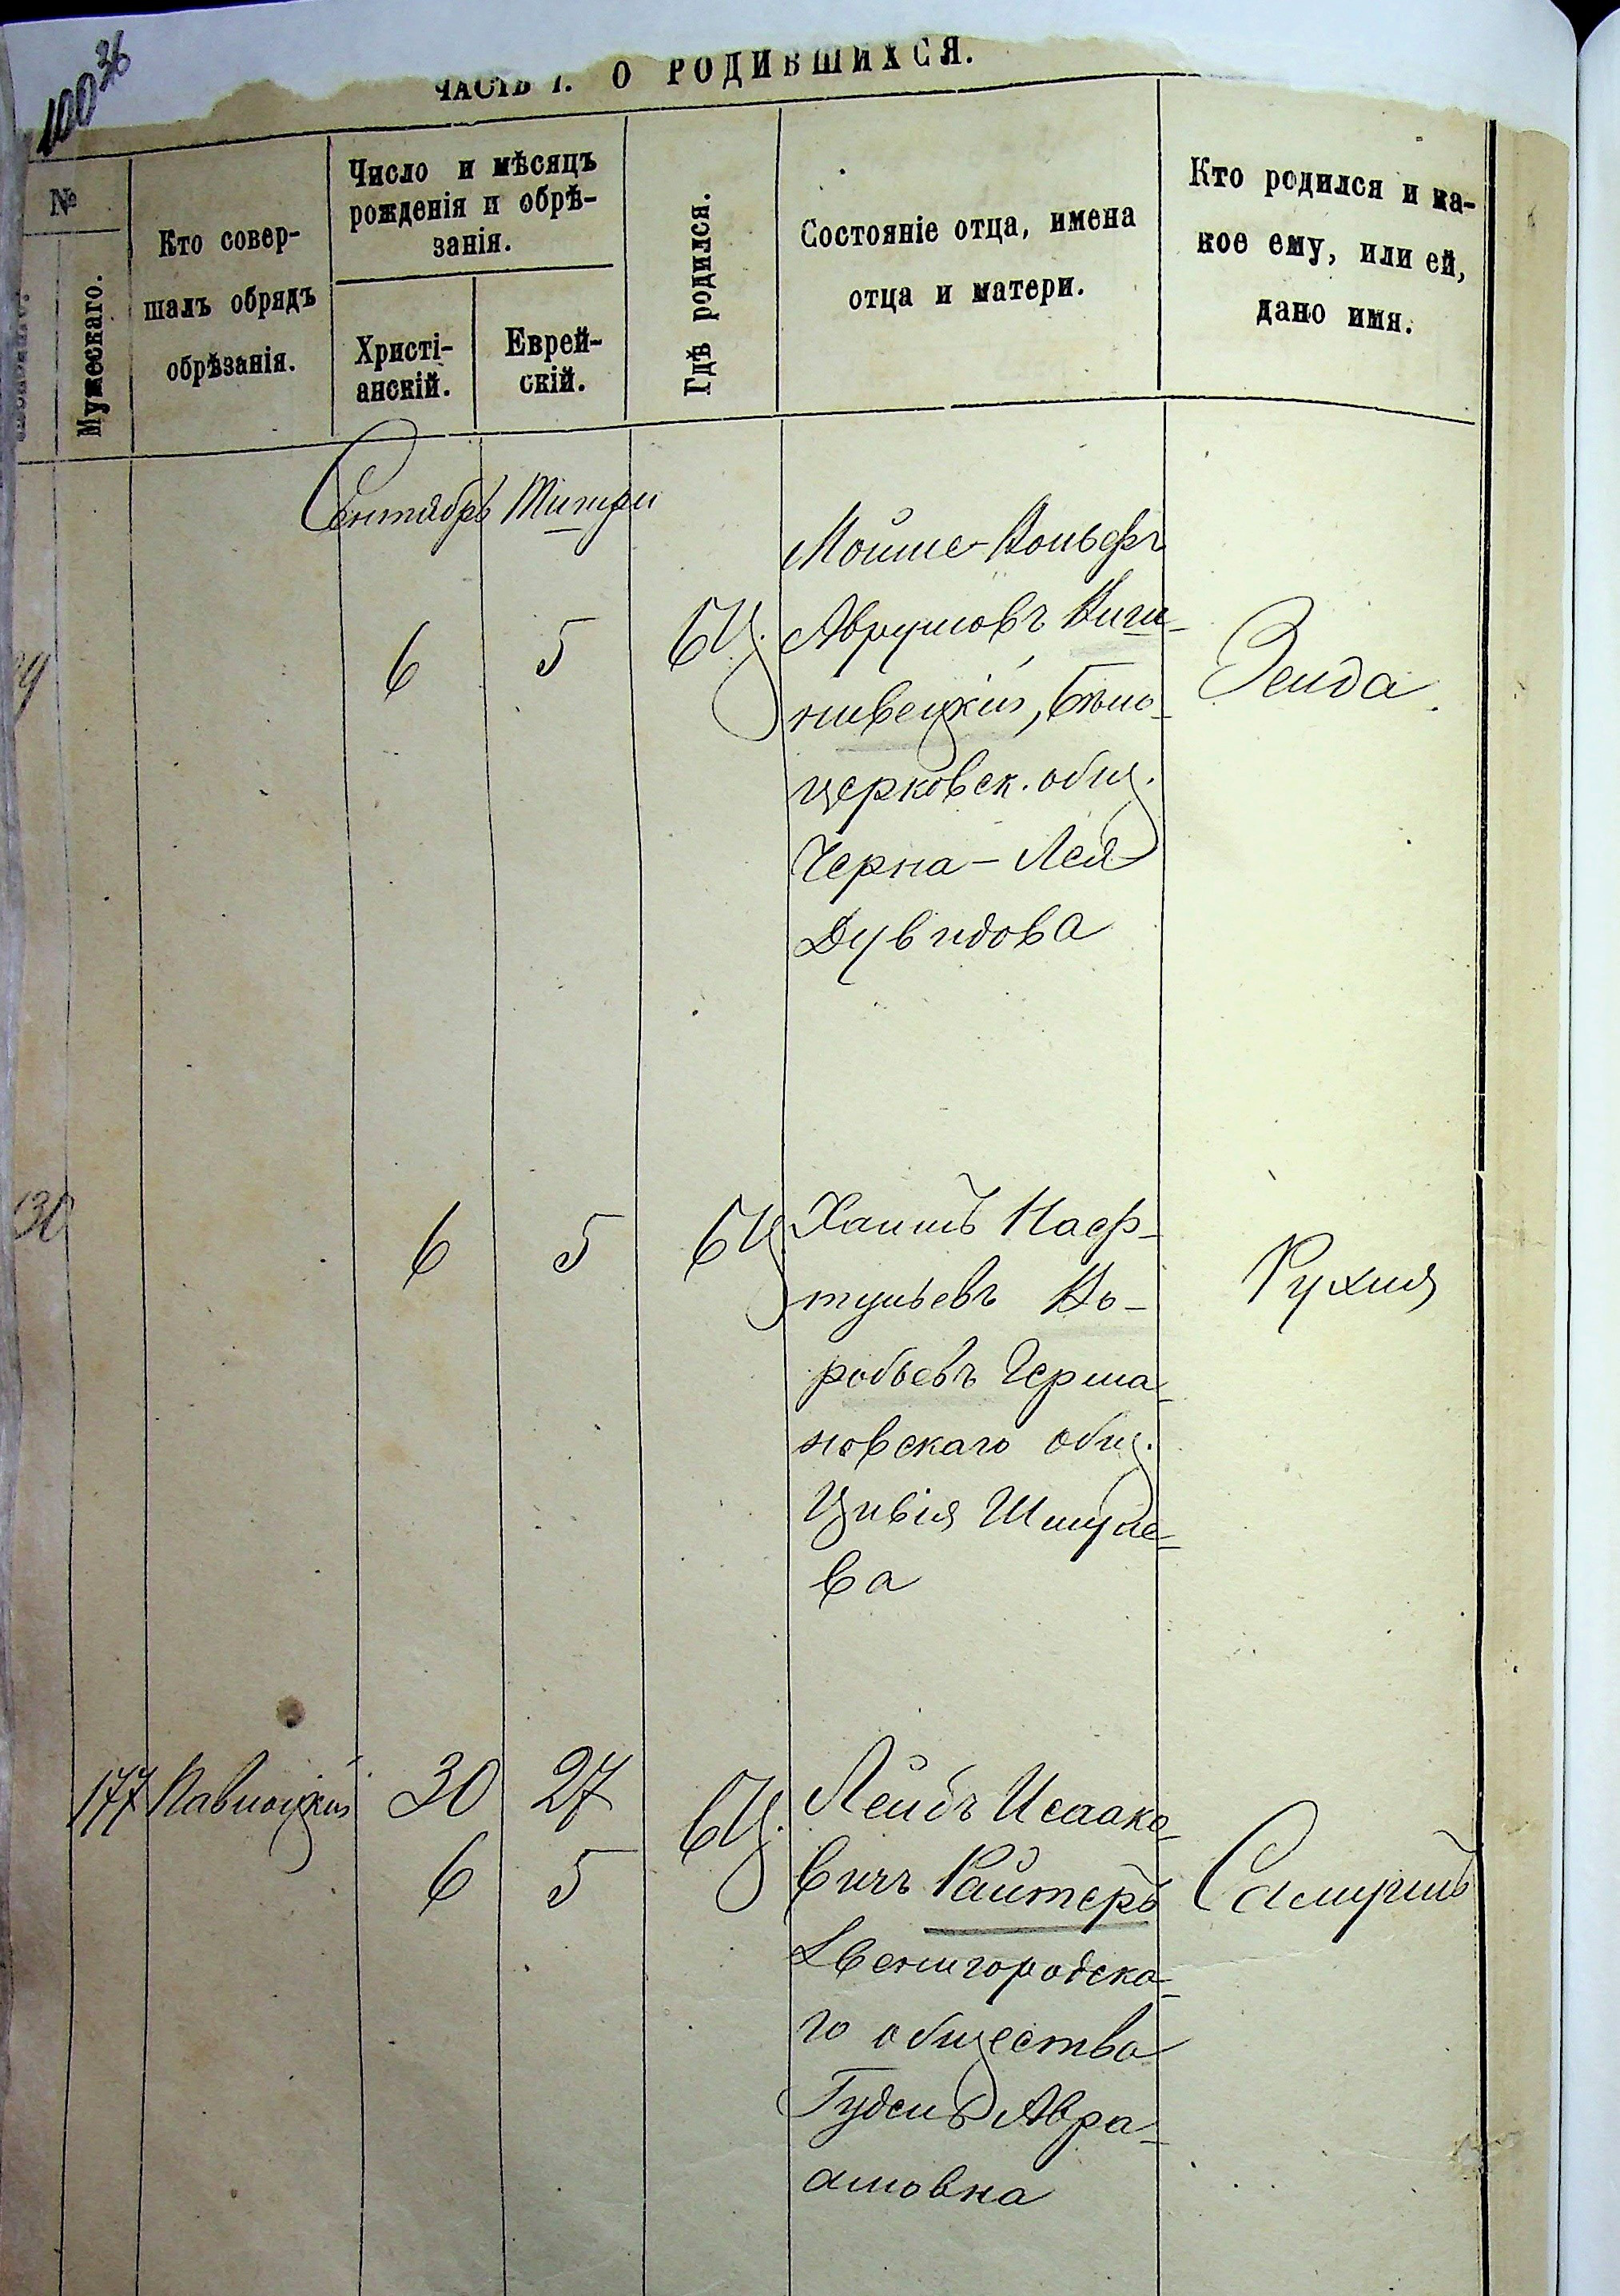 100 36
ЧАСТЬ I. О РОДИВШИХСЯ.
№
Мужескаго.
Кто совер-
шалъ обрядъ
обрѣзанія.
Число и мѣсяцъ
рожденія и обрѣ-
занія.
Христі-
анскій.
Еврей-
скій.
Гдѣ родился.
Состояніе отца, имена
отца и матери.
Кто родился и ка-
кое ему, или ей,
дано имя.
Сентябрь Тишри
6 5 БЦ.
Мойше-Вольфъ
Аврумовъ Виш-
нивецкій, Бѣло-
церковск. общ.
Черна-Лея
Дувидова
Зейда.
30
6 5 БЦ
Хаимъ Наф-
тульевъ Во-
робьевъ Герма-
новскаго общ.
Цивія Шмуле-
ва
Рухля
177 Павлоцкій 30 27
6 5 БЦ.
Лейбъ Исаако-
вичъ Райтеръ
Звенигородска-
го общества
Гудель Авра-
амовна
Самуилъ